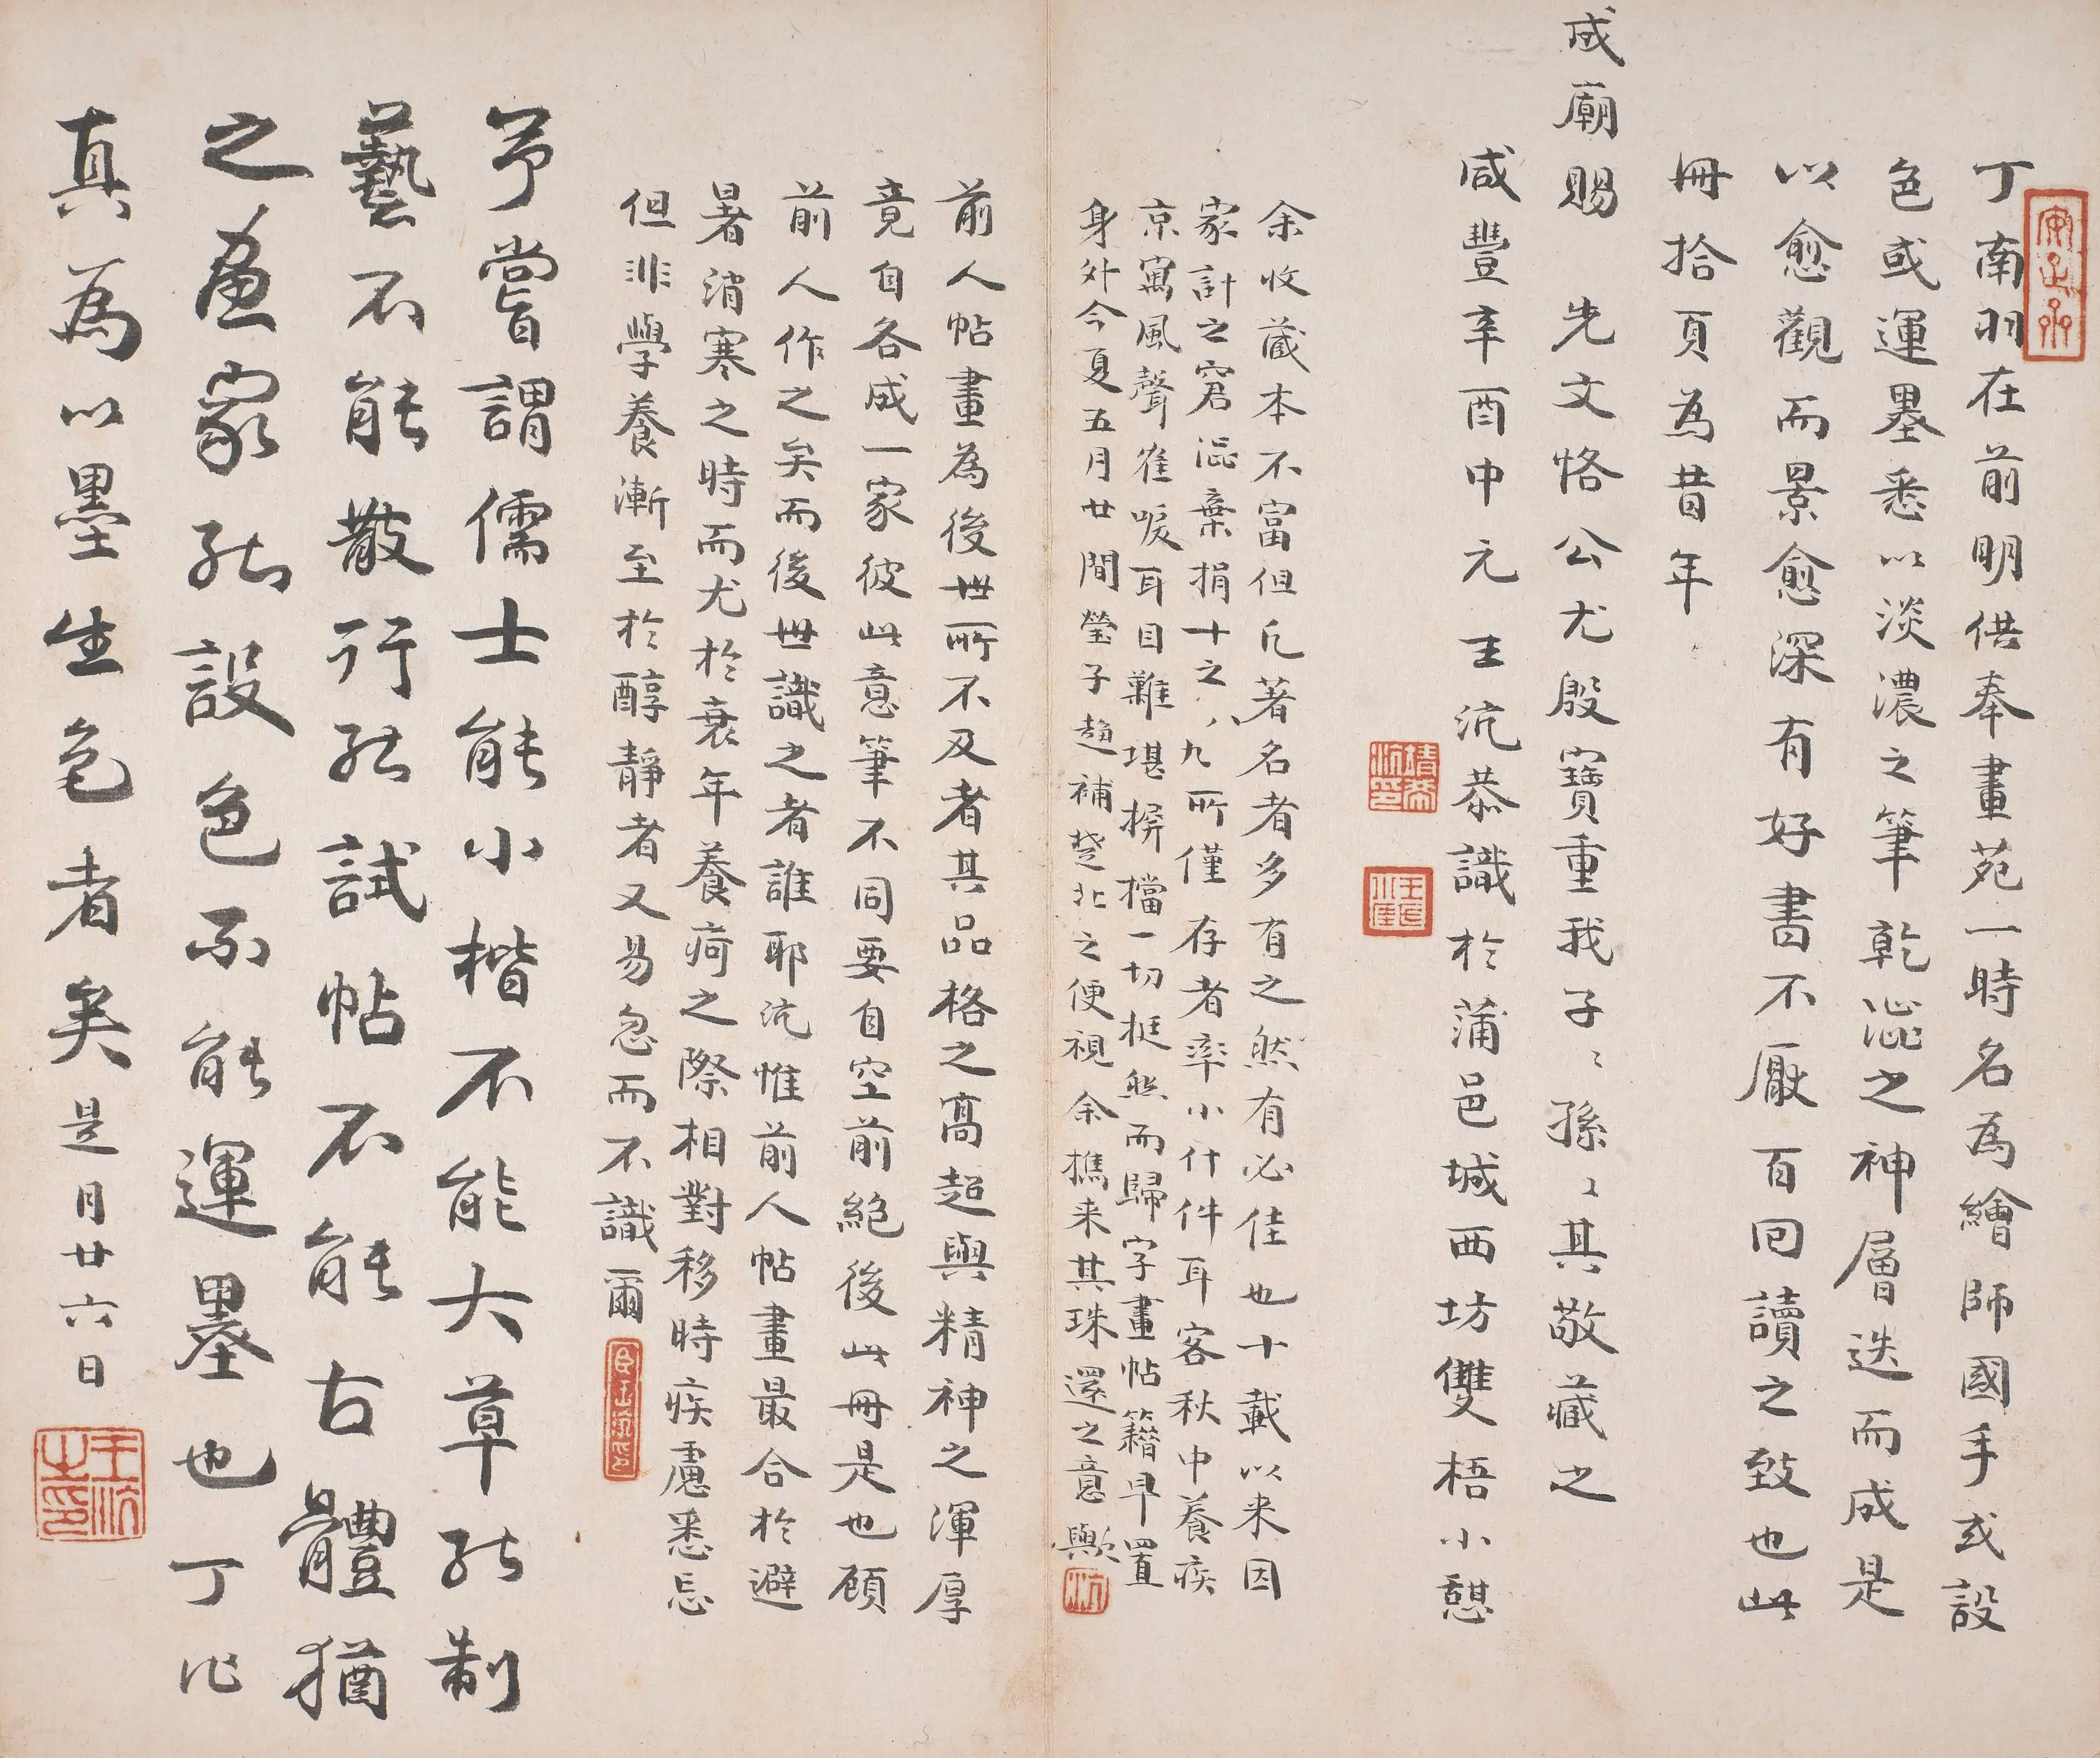 丁南羽在前明供奉畫苑一時名為繪師國手或設
色或運墨悉以淡濃之筆乾澀之神層迭而成是
以愈觀而景愈深有好書不厭百回讀之致也此
冊拾頁為昔年
成廟賜 先文恪公尤殷寶重我子〻孫〻其敬藏之
咸豐辛酉中元王沆恭識於蒲邑城西坊雙梧小憩
余收藏本不富但凡著名者多有之然有必佳也十載以来因
家計之窘澁棄捐十之八九所僅存者率小什件耳客秋中養疾
京寓風聲隺唳耳目難堪摒擋一切挺然而歸字畫帖籍早置
身外今夏五月廿間瑩子趙補楚北之便視余攜来其珠還之意歟
前人帖畫為後世所不及者其品格之高超與精神之渾厚
竟自各成一家彼此意筆不同要自空前絕後此冊是也顧
前人作之矣而後世識之者誰耶沆惟前人帖畫最合於避
暑消寒之時而尤於衰年養疴之際相對移時疾慮悉忘
但非學養漸至於醇靜者又易忽而不識爾
予嘗謂儒士能小楷不能大草能制
藝不能散行能試帖不能古體猶
之畫家能設色不能運墨也丁化
真為以墨生色者矣是月廿六日
王沆之印